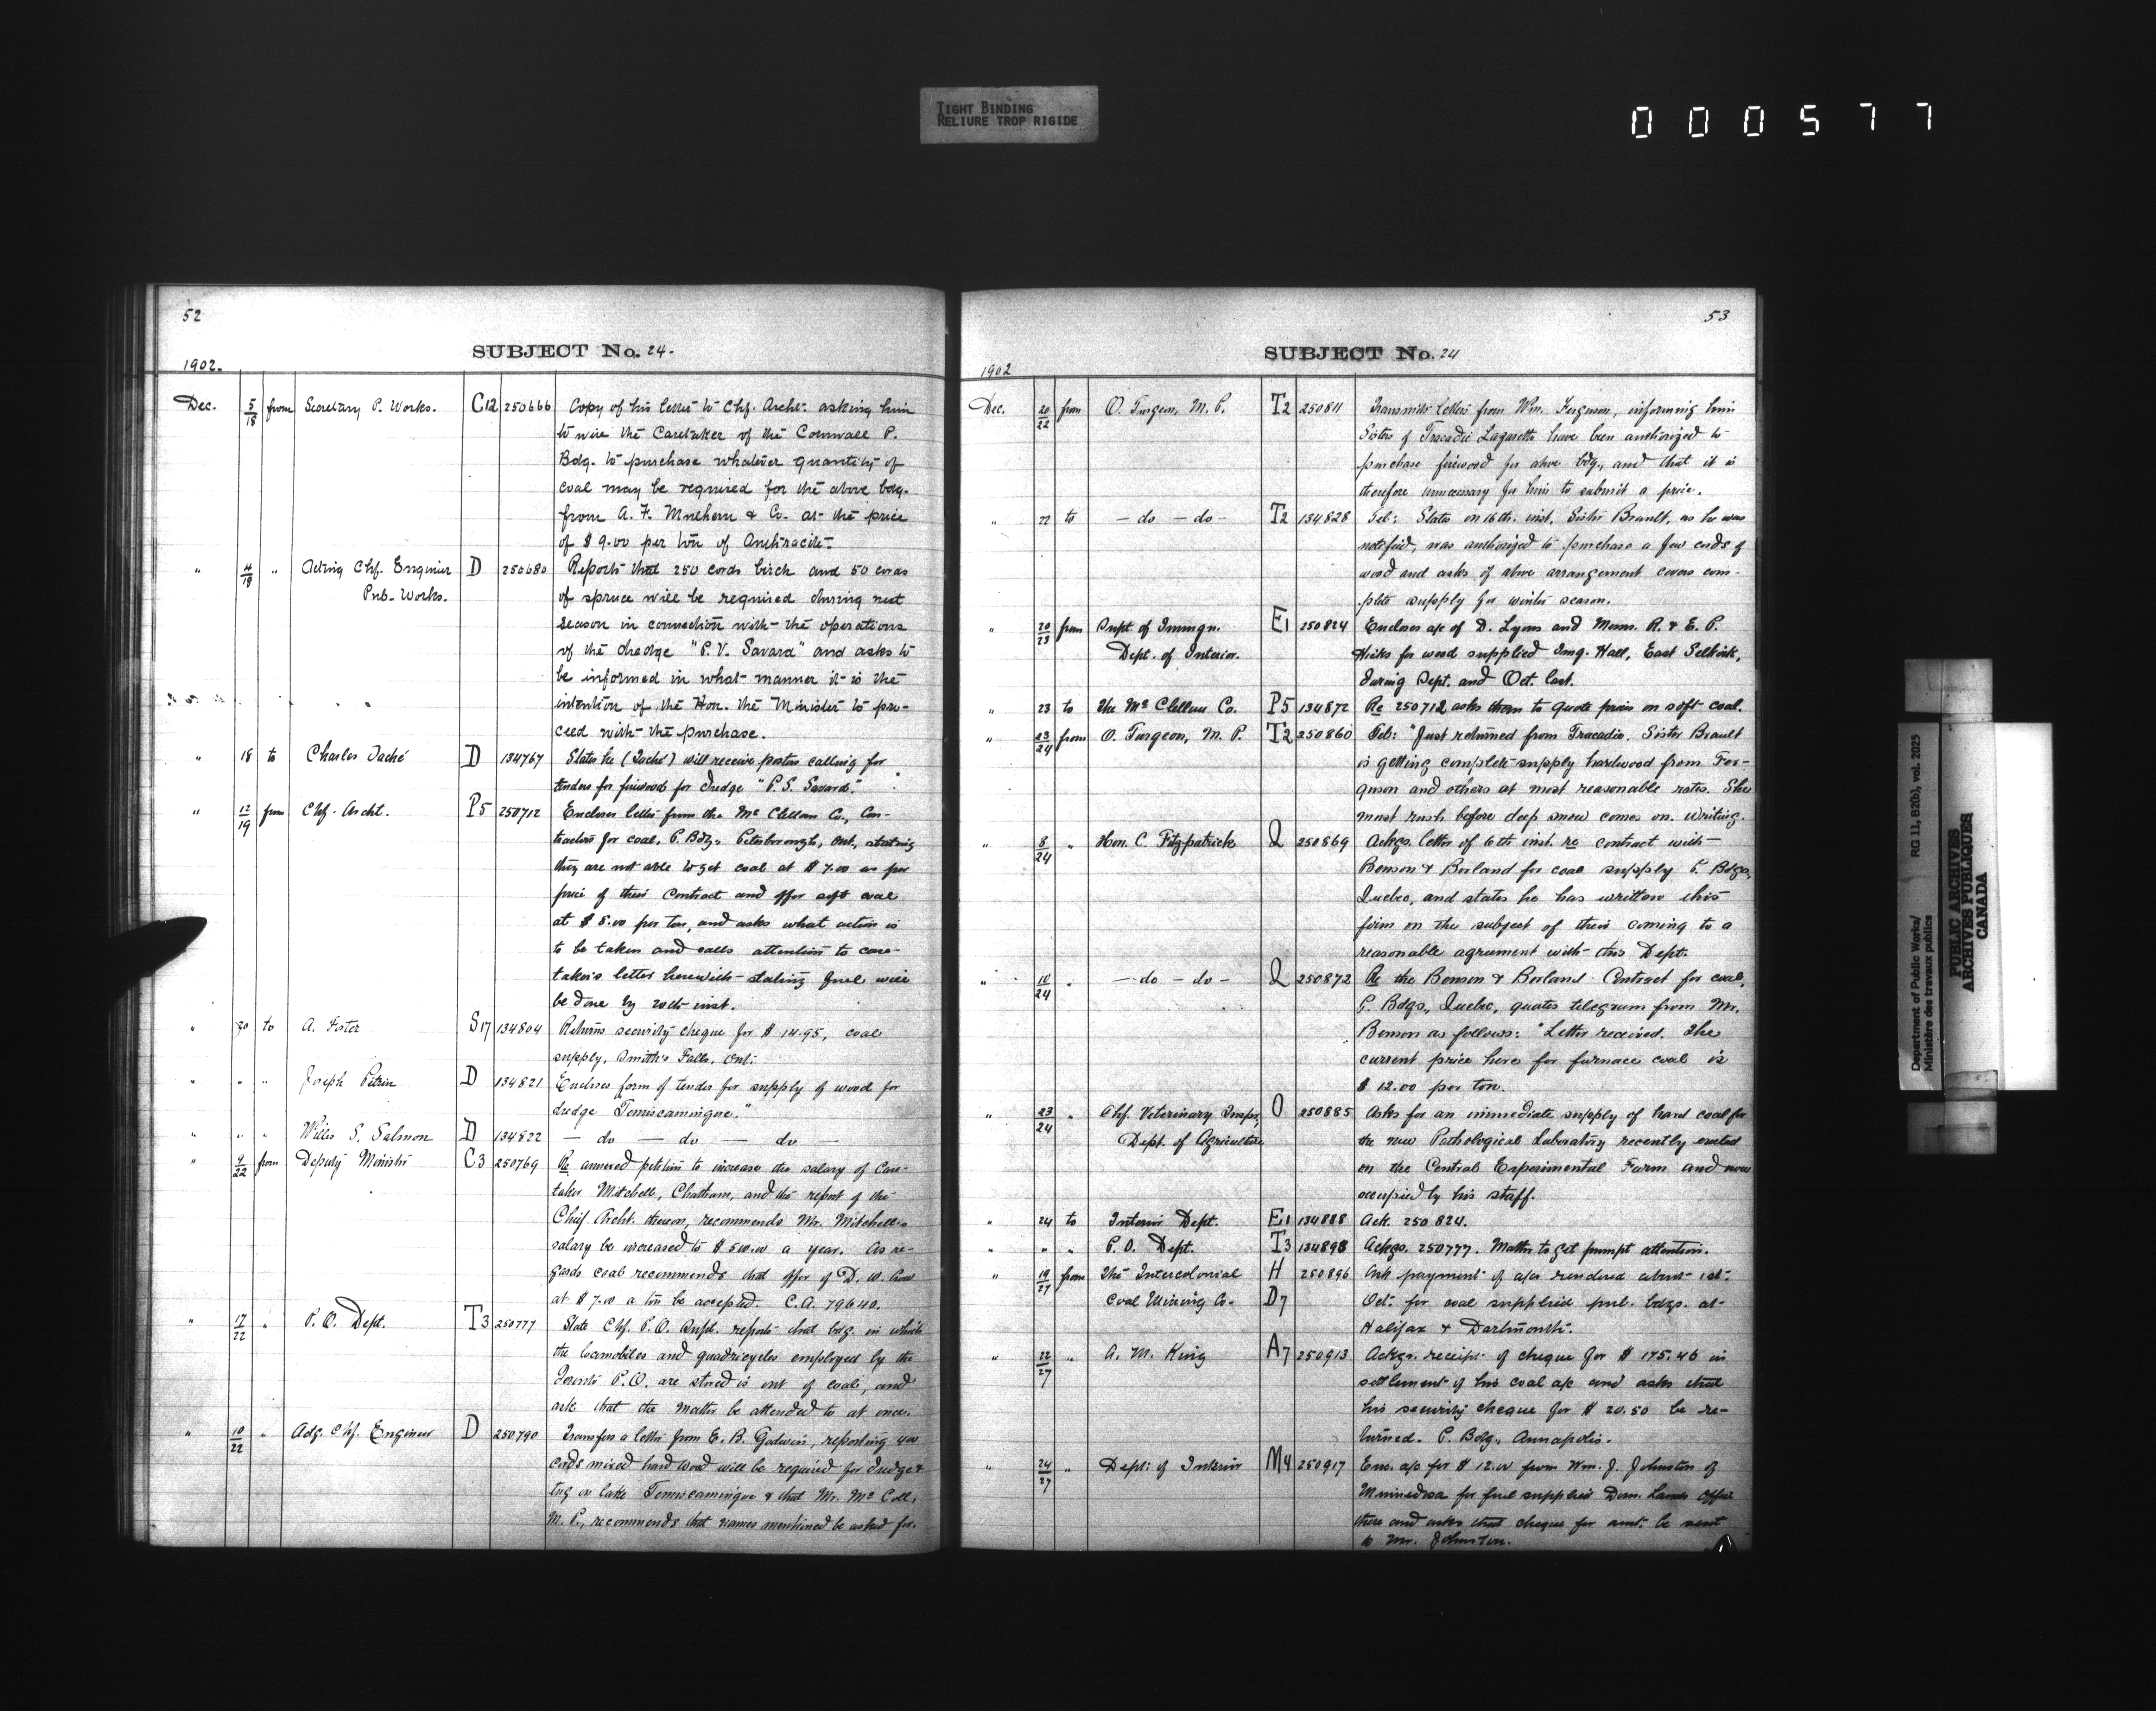 TIGHT BINDING
RELIURE TROP RIGIDE
000577
52
SUBJECT No. 24.
1902.
Dec. 5/18 from Secretary P. Works. C12 250666 Copy of his letter to Chf. Archt. asking him
to wire the Caretaker of the Cornwall P.
Bdg. to purchase whatever quantity of
coal may be required for the above bdg.
from A. F. Mulhern & Co. at the price
of $9.00 per ton of Anthracite.
" 4/18 " Acting Chf. Engineer D 250680 Reports that 250 cords birch and 50 cords
Pub. Works. of spruce will be required during next
season in connection with the operations
of the dredge "P. V. Savard" and asks to
be informed in what manner it is the
intention of the Hon. the Minister to pro-
ceed with the purchase.
" 18 to Charles Taché D 134767 States he (Taché) will receive posters calling for
tenders for firewood for dredge "P. S. Savard."
" 12/19 from Chf. Archt. P5 250712 Encloses letter from the McClellan Co., Con-
tractors for coal, P. Bdg., Peterborough, Ont., stating
they are not able to get coal at $7.00 as per
price of their contract and offer soft coal
at $8.00 per ton, and asks what action is
to be taken and calls attention to care-
taker's letter herewith stating fuel will
be done by 20th inst.
" 20 to A. Foster S17 134804 Returns security cheque for $14.95, coal
supply, Smith's Falls, Ont.
" " " Joseph Petrin D 134821 Encloses form of tender for supply of wood for
dredge Temiscamingue."
" " " Willis S. Salmon D 134822 — do — do — do —
" 9/22 from Deputy Minister C3 250769 Re annexed petition to increase the salary of Care-
taker Mitchell, Chatham, and the report of the
Chief Archt. thereon, recommends Mr. Mitchell's
salary be increased to $500.00 a year. As re-
gards coal recommends that offer of D. W.
at $7.00 a ton be accepted. C.A. 79640.
" 17/22 " P. O. Dept. T3 250777 State Chf. P.O. Supt. reports that bdg. in which
the locomobiles and quadricycles employed by the
Toronto P.O. are stored is out of coal, and
ask that the matter be attended to at once.
" 10/22 " Actg. Chf. Engineer D 250790 Transfers a letter from E. B. Godwin, reporting 400
cords mixed hard wood will be required for dredge &
tug on lake Temiscamingue & that Mr. McCool,
M. P., recommends that names mentioned be asked for.
53
SUBJECT No. 24
1902
Dec. 20/22 from O. Turgeon, M. P. T2 250811 Transmits letter from Wm. Ferguson, informing him
Sisters of Tracadie Lazaretto have been authorized to
purchase firewood for above bdg., and that it is
therefore unnecessary for him to submit a price.
" 22 to — do — do — T2 134828 Tel: States on 16th. inst. Sister Brault, as he was
notified, was authorized to purchase a few cords of
wood and asks if above arrangement covers com-
plete supply for winter season.
" 20/23 from Supt. of Immgn. E1 250824 Encloses a/c of D. Lyons and Messrs. R. & E. P.
Dept. of Interior. Hicks for wood supplied Img. Hall, East Selkirk,
during Sept. and Oct. last.
" 23 to The McClellan Co. P5 134872 Re 250712 asks them to quote prices on soft coal.
" 23/24 from O. Turgeon, M. P. T2 250860 Tel: "Just returned from Tracadie. Sister Brault
is getting complete supply hardwood from Fer-
guson and others at most reasonable rates. She
must rush before deep snow comes on. Writing.
" 8/24 " Hon. C. Fitzpatrick Q 250869 Ackgs. letter of 6th inst. re contract with
Benson & Borland for coal supply P. Bdgs.,
Quebec, and states he has written this
firm on the subject of their coming to a
reasonable agreement with this Dept.
" 10/24 " — do — do — Q 250872 Re the Benson & Borland Contract for coal,
P. Bdgs., Quebec, quotes telegram from Mr.
Benson as follows: "Letter received. The
current price here for furnace coal is
$12.00 per ton.
" 23/24 " Chf. Veterinary Inspr, O 250885 Asks for an immediate supply of hard coal for
Dept. of Agriculture the new Pathological Laboratory recently erected
on the Central Experimental Farm and now
occupied by his staff.
" 24 to Interior Dept. E1 134888 Ack. 250824.
" " " P. O. Dept. T3 134898 Ackgs. 250777. Matter to get prompt attention.
" 19/27 from The Intercolonial H 250896 Ask payment of a/cs rendered about 1st.
Coal Mining Co. D7 Oct. for coal supplied pub. bdgs. at
Halifax & Dartmouth.
" 22/27 " A. M. King A7 250913 Ackgs. receipt of cheque for $175.46 in
settlement of his coal a/c and asks that
his security cheque for $20.50 be re-
turned. P. Bdg., Annapolis.
" 24/27 " Dept. of Interior M4 250917 Enc. a/c for $12.00 from Wm. J. Johnston of
Minnedosa for fuel supplied Dom. Lands Office
there and asks that cheque for amt. be sent
to Mr. Johnston.
Department of Public Works/ RG 11, B2(b), vol. 2025
Ministère des travaux publics
PUBLIC ARCHIVES
ARCHIVES PUBLIQUES
CANADA